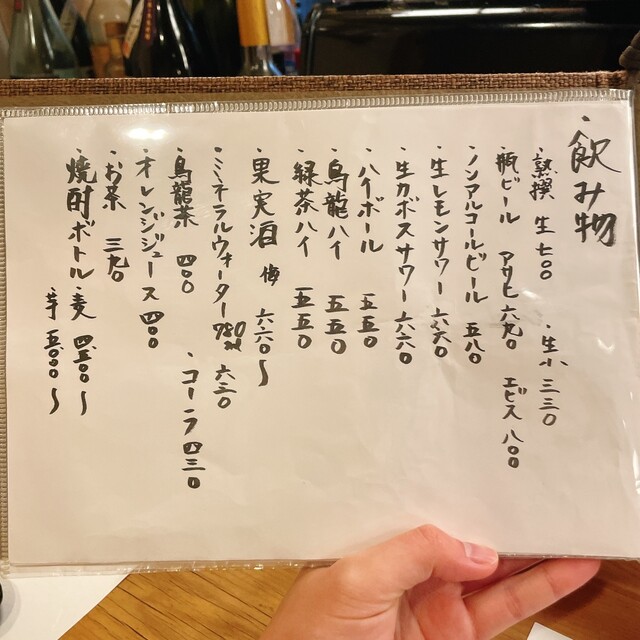 ・飲み物
・熟撰 生 七〇〇 ・生小 三三〇
・瓶ビール アサヒ 六九〇 エビス 八〇〇
・ノンアルコールビール 五八〇
・生レモンサワー 六六〇
・生カボスサワー 六六〇
・ハイボール 五五〇
・烏龍ハイ 五五〇
・緑茶ハイ 五五〇
・果実酒 梅 六六〇〜
・ミネラルウォーター 780ml 六三〇
・烏龍茶 四〇〇 ・コーラ 四三〇
・オレンジジュース 四〇〇
・お茶 三九〇
・焼酎ボトル 麦 四五〇〇〜
芋 五〇〇〇〜